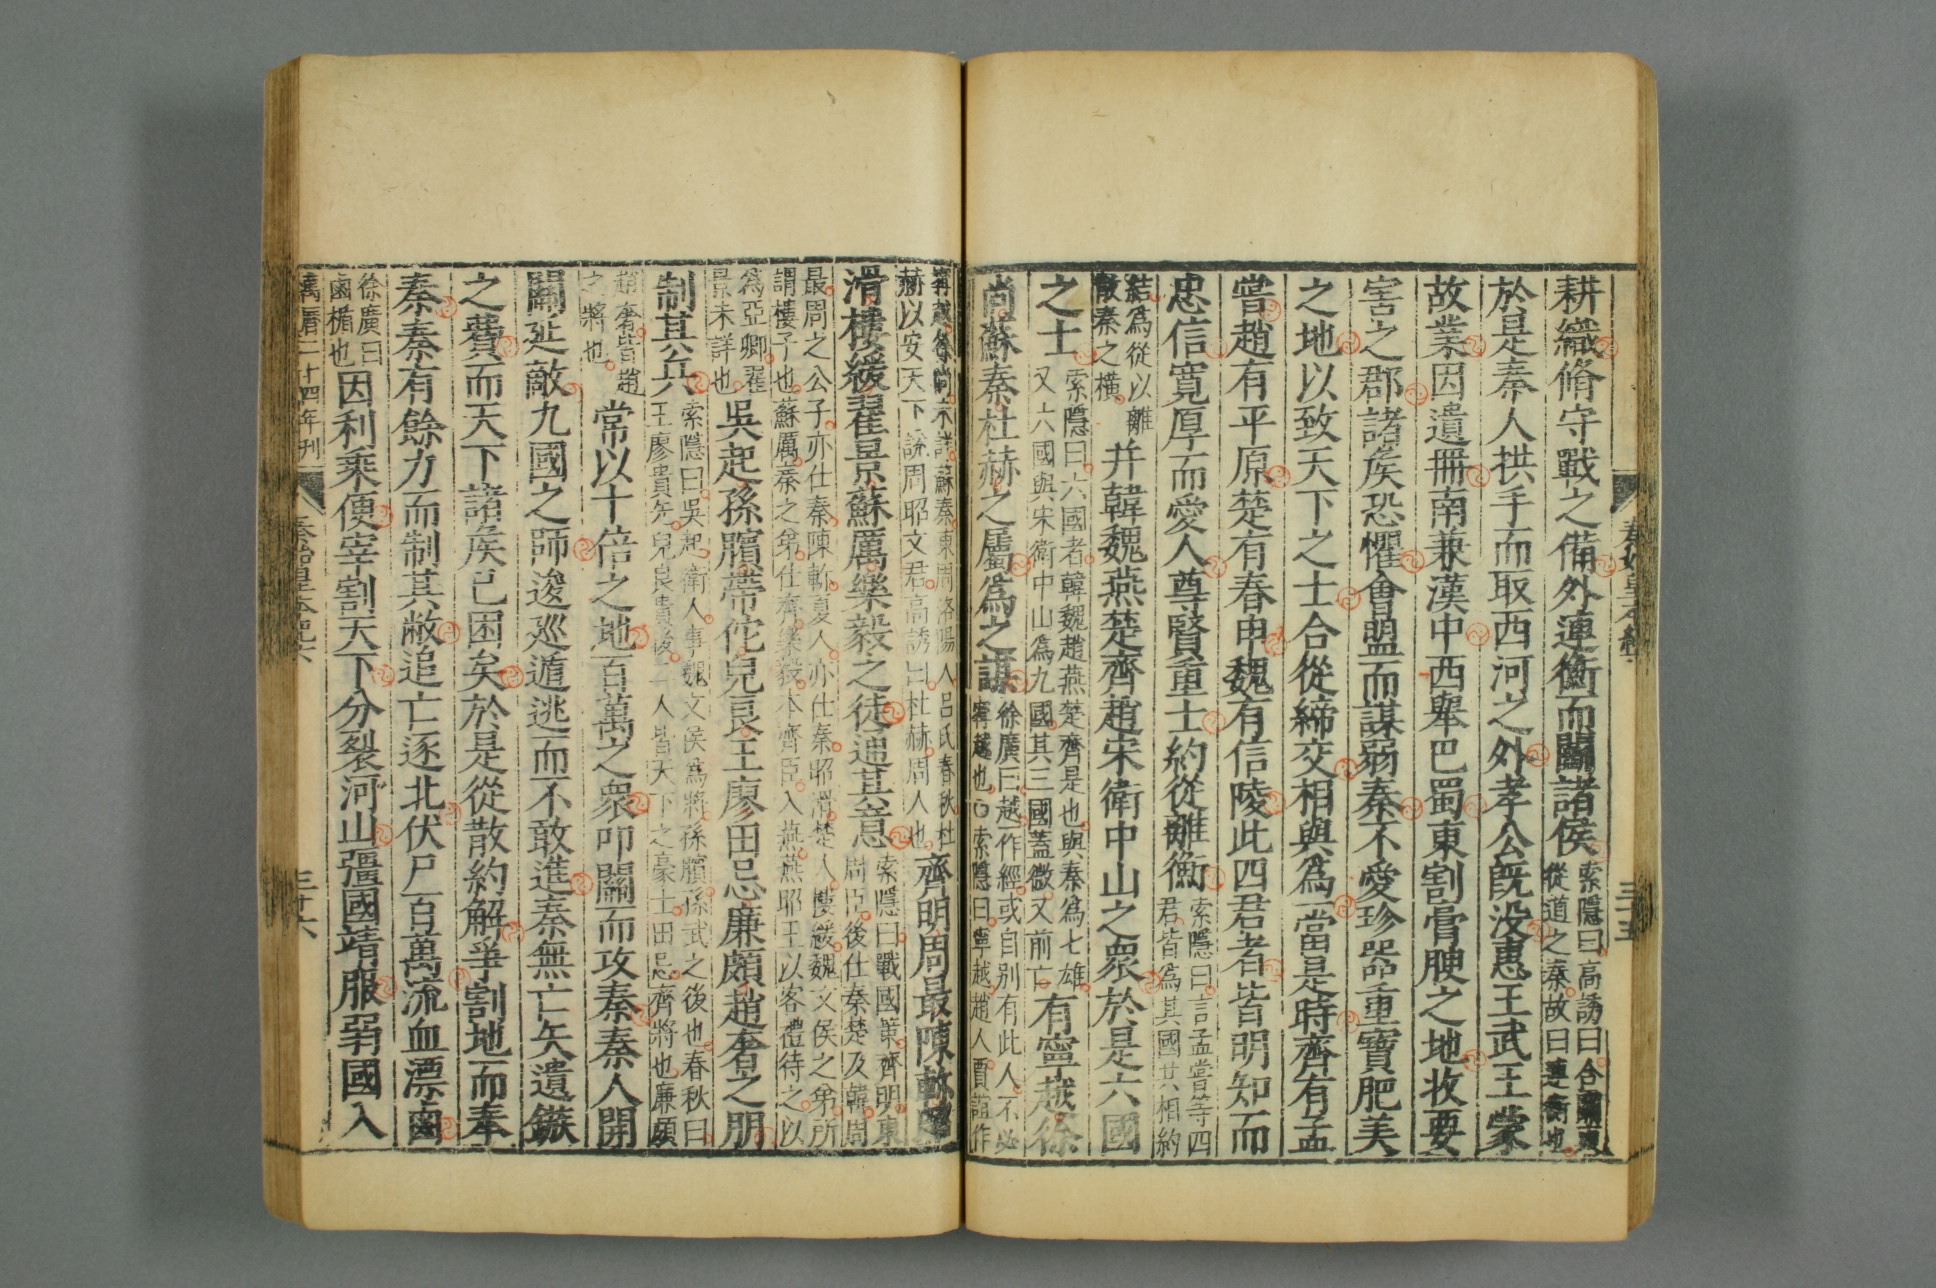 秦始皇本紀六
三十五
耕織脩守戰之備外連衡而鬭諸侯 索隱曰高誘曰合關東從道之秦故曰連衡也
於是秦人拱手而取西河之外孝公旣沒惠王武王蒙
故業因遺冊南兼漢中西舉巴蜀東割膏腴之地收要
害之郡諸侯恐懼會盟而謀弱秦不愛珍器重寶肥美
之地以致天下之士合從締交相與爲一當是時齊有孟
嘗趙有平原楚有春申魏有信陵此四君者皆明知而
忠信寬厚而愛人尊賢重士約從離衡 索隱曰言孟嘗等四君皆爲其國共相約
結爲從以離散秦之橫 并韓魏燕楚齊趙宋衛中山之衆於是六國
之士 索隱曰六國者韓魏趙燕楚齊是也與秦爲七雄又六國與宋衛中山爲九國其三國蓋微又前亡 有寧越徐
尚蘇秦杜赫之屬爲之謀 徐廣曰越一作經或自別有此人不必寗越也○索隱曰寧越趙人賈誼作
寗越徐尚未詳蘇秦東周洛陽人呂氏春秋杜赫以安天下說周昭文君高誘曰杜赫周人也 齊明周最陳軫昭
滑樓緩翟景蘇厲樂毅之徒通其意 索隱曰戰國策齊明東周臣後仕秦楚及韓周
最周之公子亦仕秦陳軫夏人亦仕秦昭滑楚人樓緩魏文侯之弟所謂樓子也蘇厲秦之弟仕齊樂毅本齊臣入燕燕昭王以客禮待之以
爲亞卿翟景未詳也 吳起孫臏帶佗兒良王廖田忌廉頗趙奢之朋
制其兵 索隱曰吳起衛人事魏文侯爲將孫臏孫武之後也春秋曰王廖貴先兒良貴後二人皆天下之豪士田忌齊將也廉頗
趙奢皆趙之將也 常以十倍之地百萬之衆叩關而攻秦秦人開
關延敵九國之師逡巡遁逃而不敢進秦無亡矢遺鏃
之費而天下諸侯已困矣於是從散約解爭割地而奉
秦秦有餘力而制其敝追亡逐北伏尸百萬流血漂鹵
徐廣曰鹵楯也 因利乘便宰割天下分裂河山彊國請服弱國入
萬曆二十四年刊
秦始皇本紀六
三十六